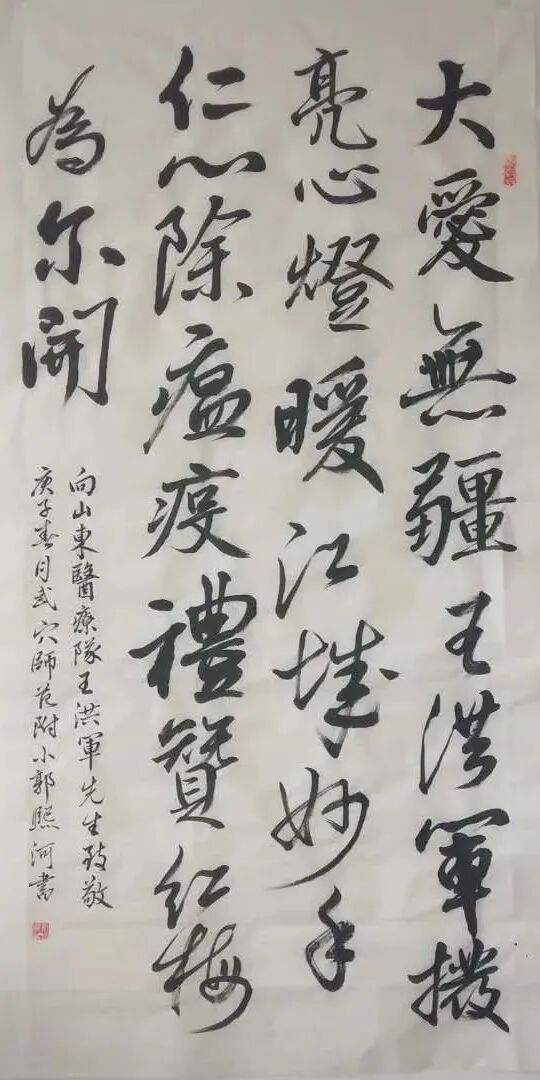 大愛無疆王洪軍撥
亮心燈暖江城妙手
仁心除瘟疫禮贊紅梅
為尔開
向山東醫療隊王洪軍先生致敬
庚子春月武穴師范附小郭熙河書